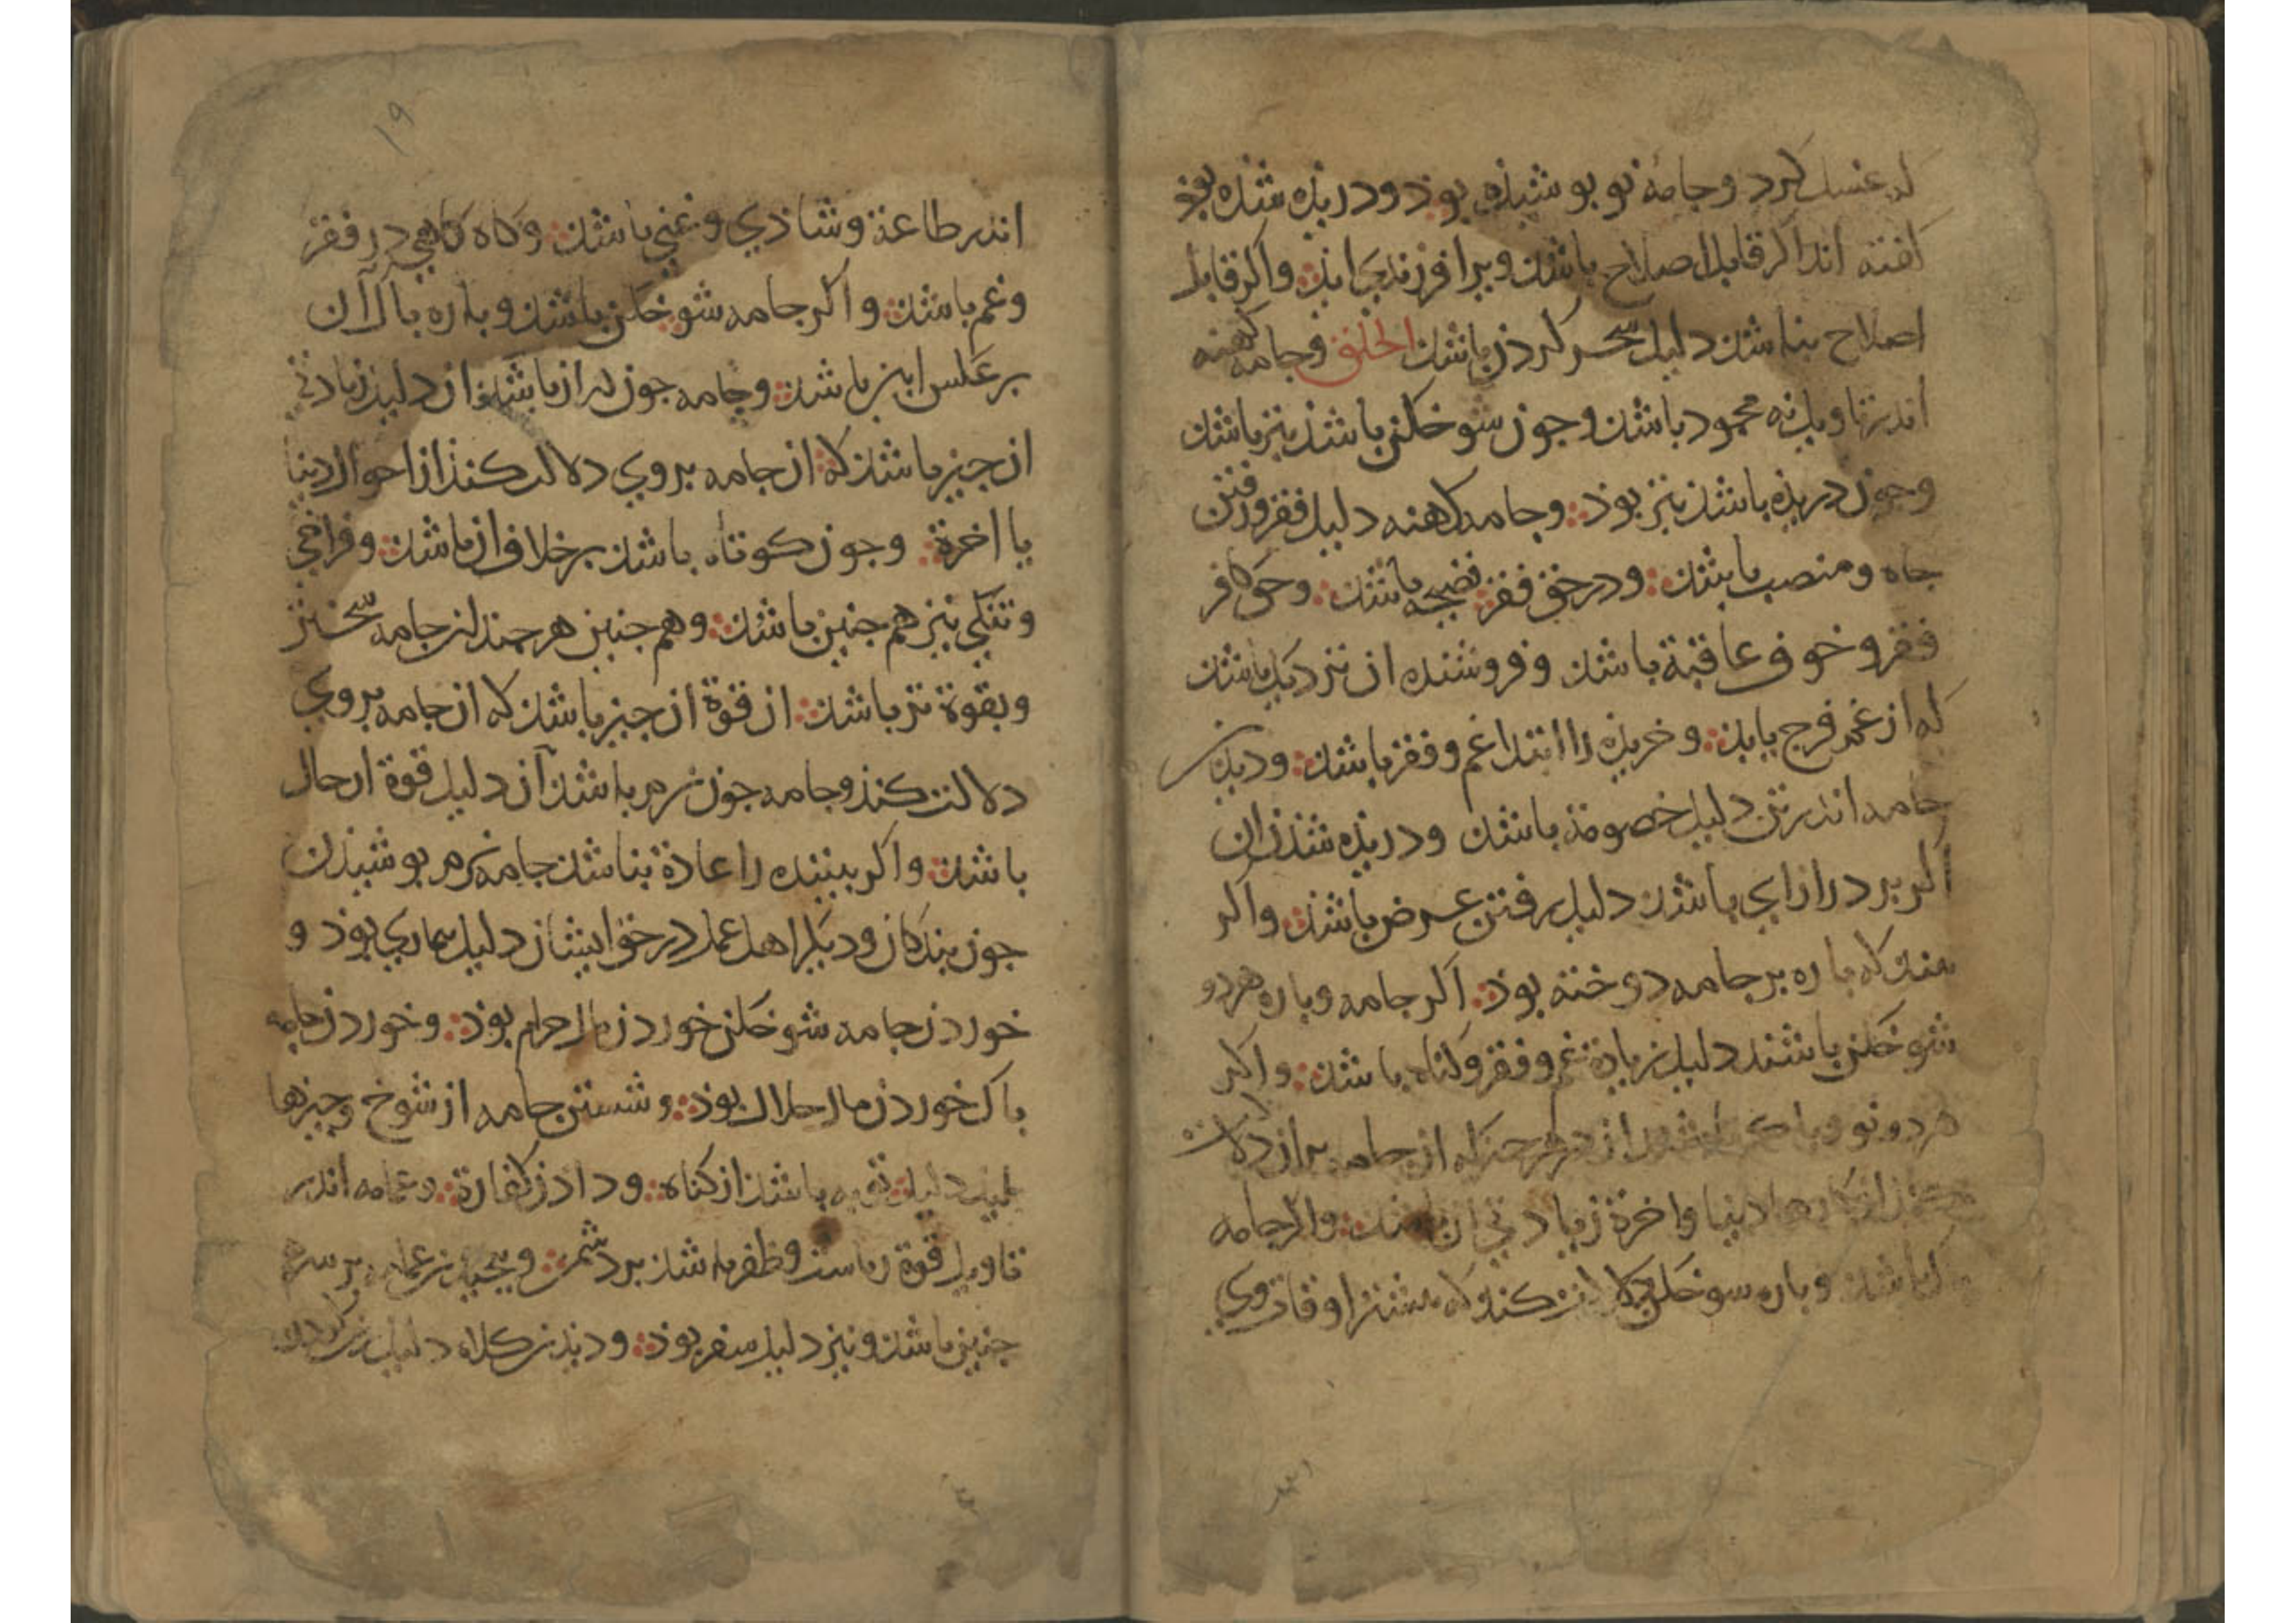 که غسل کرد و جامهٔ نو بوشیذه بوذ و دریذه شذه بوذ
کفته اند اکر قابل اصلاح باشذ ویرا فرزندی ایذ؞ واکر قابل
اصلاح نباشذ دلیل سحر کردن باشذ الخلق وجامه کهنه
اندر تاویل نه محمود باشذ وجون شوخکن باشذ بتر باشذ
وجون دریذه باشذ بتر بوذ؞ وجامه کهنه دلیل فقر ورفتن
جاه ومنصب باشذ؞ ودر حق فقر فضیحه باشذ؞ وحق کافر
فقر وخوف عاقبة باشذ وفروشنده ان نزدیک باشذ
که از غم فرج یابذ؞ وخریذه را ابتدا غم وفقر باشذ؞ ودیذن
جامه اندر تن دلیل خصومة باشذ ودریذه شذن ان
اکر بر درازای باشذ دلیل رفتن عرض باشذ؞ واکر
بیند که باره بر جامه دوخته بوذ؞ اکر جامه وباره هردو
شوخکن باشند دلیل زیادة غم وفقر وکناه باشذ؞ واکر
هردو نو وباک باشذ از هر جیز که ان جامه بران دلالت
کنذ از کارهاء دنیا واخرة زیادتی ان باشذ؞ واکر جامه
باک باشذ وباره شوخکن دلالت کنذ که بیشتر اوقات وی
۱۹
اندر طاعة وشاذی وغنی باشذ؞ وکاه کاهی در فقر
وغم باشذ؞ واکر جامه شوخکن باشذ وباره باک آن
بر عکس این باشذ؞ وجامه جون دراز باشذ ان دلیل زیادتی
ان جیز باشذ که؞ ان جامه بر وی دلالت کنذ از احوال دنیا
یا اخرة؞ وجون کوتاه باشذ بر خلاف ان باشذ؞ وفراخی
وتنکی نیز هم جنین باشذ؞ وهم جنین هر جند که جامه سختر
وبقوة تر باشذ؞ ان قوة ان جیز باشذ که ان جامه بر وی
دلالت کنذ وجامه جون نرم باشذ آن دلیل قوة ان حال
باشذ؞ واکر بیننده را عادة نباشذ جامهٔ نرم بوشیذن
جون بندکان ودیکر اهل عمل در حق ایشان دلیل بیماری بوذ و
خوردن جامه شوخکن خوردن مال حرام بوذ؞ وخوردن جامه
باک خوردن مال حلال بوذ؞ وشستن جامه از شوخ وجیزهاء
بلید دلیل توبه باشذ از کناه؞ ودادن کفارة؞ وعمامه اندر
تاویل قوة ریاست وظفر باشذ بر دشمن؞ وبیجیذن عمامه بر سر هم
جنین باشذ ونیز دلیل سفر بوذ؞ ودیذن کلاه دلیل